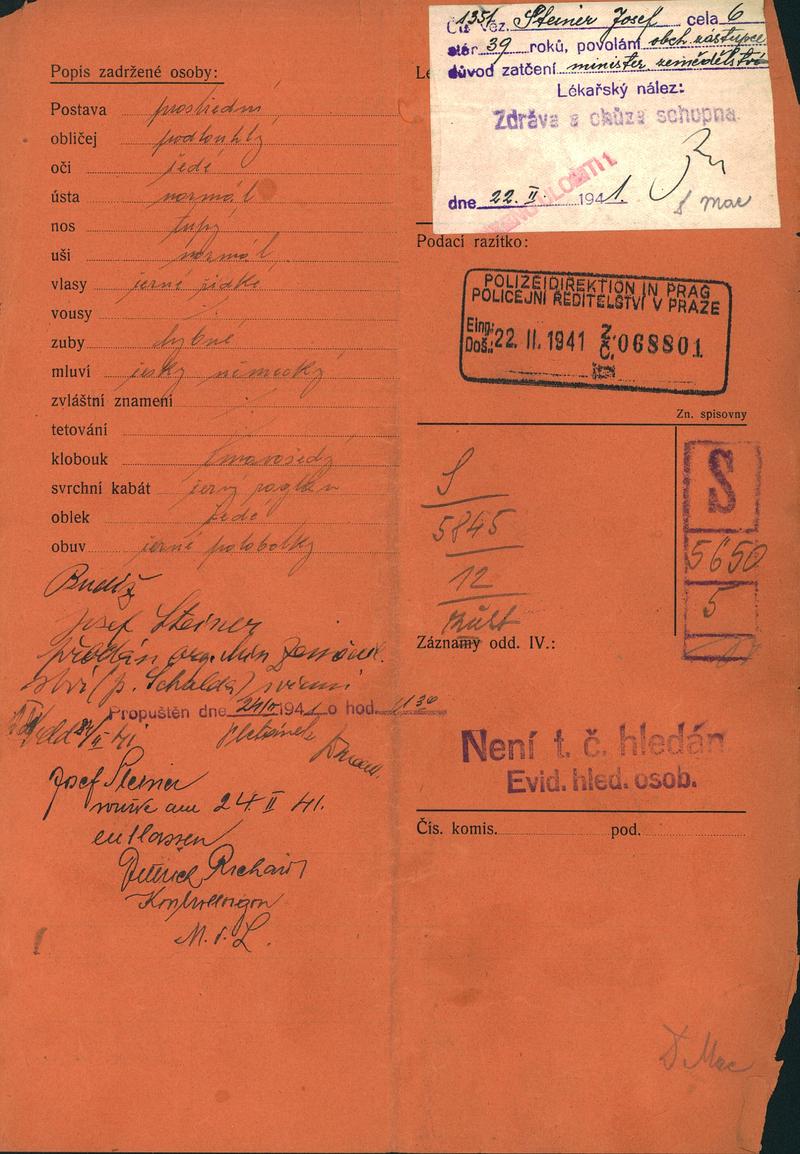 Popis zadržené osoby:
Postava prostřední
obličej podlouhlý
oči šedé
ústa normál
nos tupý
uši normál
vlasy černé řídké
vousy
zuby chybné
mluví česky německy
zvláštní znamení
tetování
klobouk tmavošedý
svrchní kabát černý raglán
oblek šedé
obuv černé polobotky
Budiž
Josef Steiner
předán org. Min. Zeměděl.
ství (p. Schalda)
Propuštěn dne 24/II 1941 o hod. 11 30
Josef Steiner
wurde am 24 II 41.
entlassen
Dittrich Richard
Kontrollorgan
M. f. L.
Čís. 1351 věz. Steiner Josef cela 6
stár 39 roků, povolání obch. zástupce
důvod zatčení minister. zemědělství
Lékařský nález:
Zdráva a chůze schopna
dne 22. II. 1941.
Podací razítko:
POLIZEIDIREKTION IN PRAG
POLICEJNÍ ŘEDITELSTVÍ V PRAZE
Eing.:
Doš.: 22. II. 1941 068801
Zn. spisovny
S
5845
12
S
5650
5
Záznamy odd. IV.:
Není t. č. hledán
Evid. hled. osob.
Čís. komis. pod.